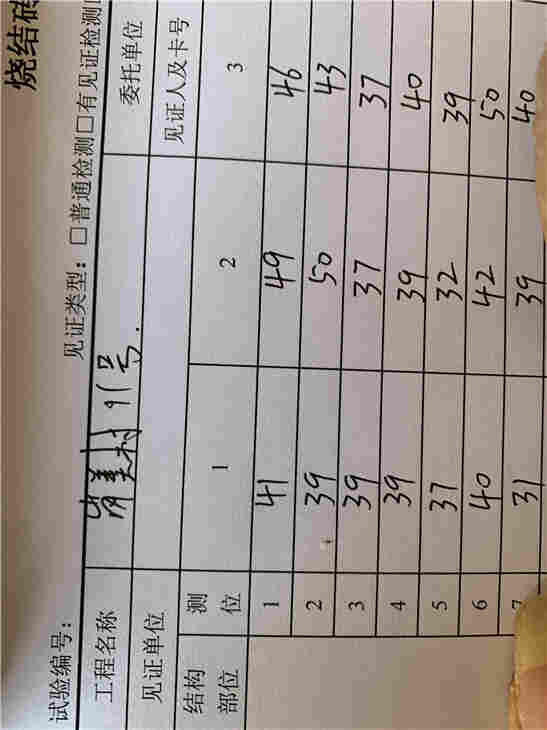 烧结砖
试验编号: 见证类型: □普通检测□有见证检测
工程名称 美村91号. 委托单位
见证单位 见证人及卡号
结构 测 1 2 3
部位 位
1 41 49 46
2 39 50 43
3 39 37 37
4 39 39 40
5 37 32 39
6 40 42 50
7 31 39 40